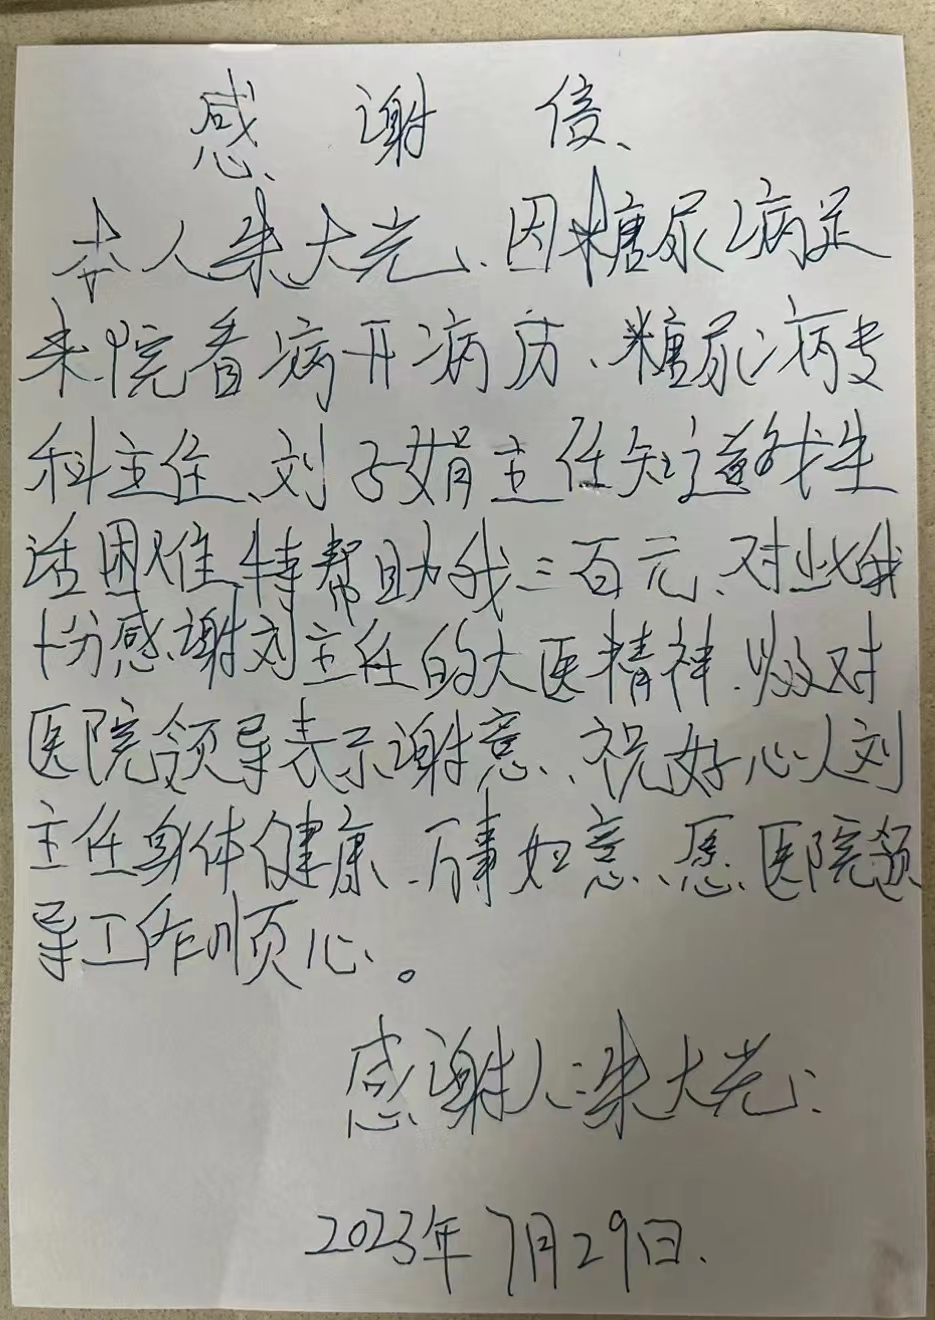 感谢信、
本人朱大光、因糖尿病足
来院看病开病历、糖尿病专
科主任、刘子娟主任知道我生
活困难特帮助我三百元、对此我
十分感谢刘主任的大医精神.以及对
医院领导表示谢意、祝好心人刘
主任身体健康.万事如意、愿医院领
导工作顺心。
感谢人:朱大光:
2023年7月29日.